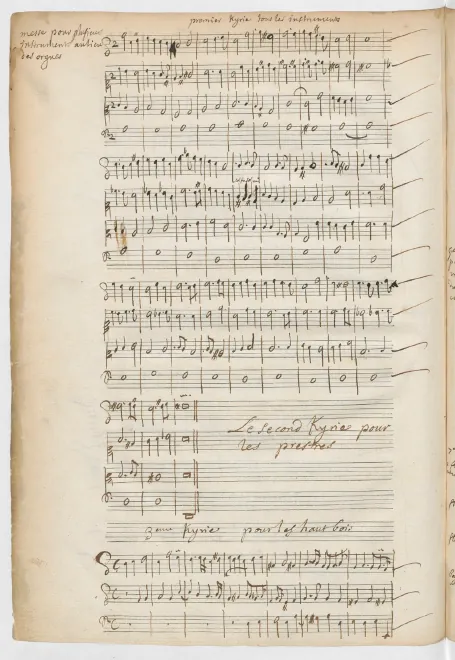 premier Kyrie tous les instruments
messe pour plusieurs
instruments au lieu
des orgues
Le second Kyrie pour
les prestres
3eme Kyrie pour les haut bois